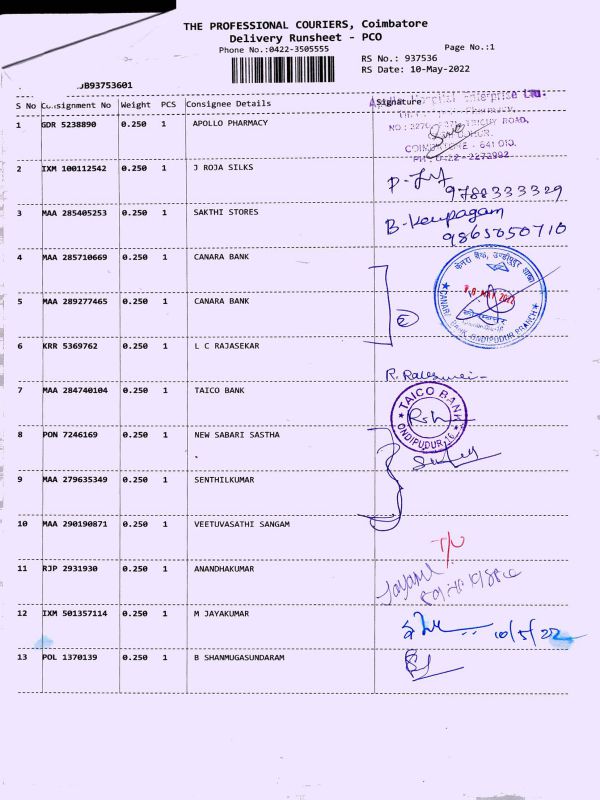 THE PROFESSIONAL COURIERS, Coimbatore
Delivery Runsheet - PCO
Phone No.:0422-3505555
Page No.:1
RS No.: 937536
RS Date: 10-May-2022
JB93753601
S No Consignment No Weight PCS Consignee Details Signature
1 GDR 5238890 0.250 1 APOLLO PHARMACY
ROAD,
COIMBATORE - 641 013.
2 IXM 100112542 0.250 1 J ROJA SILKS
9788333329
3 MAA 285405253 0.250 1 SAKTHI STORES
B. Karupagam
9865050710
4 MAA 285710669 0.250 1 CANARA BANK
5 MAA 289277465 0.250 1 CANARA BANK
2
MAY 2022
CANARA BANK, ONDIPUDUR BRANCH
6 KRR 5369762 0.250 1 L C RAJASEKAR
7 MAA 284740104 0.250 1 TAICO BANK
TAICO BANK
ONDIPUDUR
8 PON 7246169 0.250 1 NEW SABARI SASTHA
9 MAA 279635349 0.250 1 SENTHILKUMAR
10 MAA 290190871 0.250 1 VEETUVASATHI SANGAM
11 RJP 2931930 0.250 1 ANANDHAKUMAR
12 IXM 501357114 0.250 1 M JAYAKUMAR
10/5/22
13 POL 1370139 0.250 1 B SHANMUGASUNDARAM